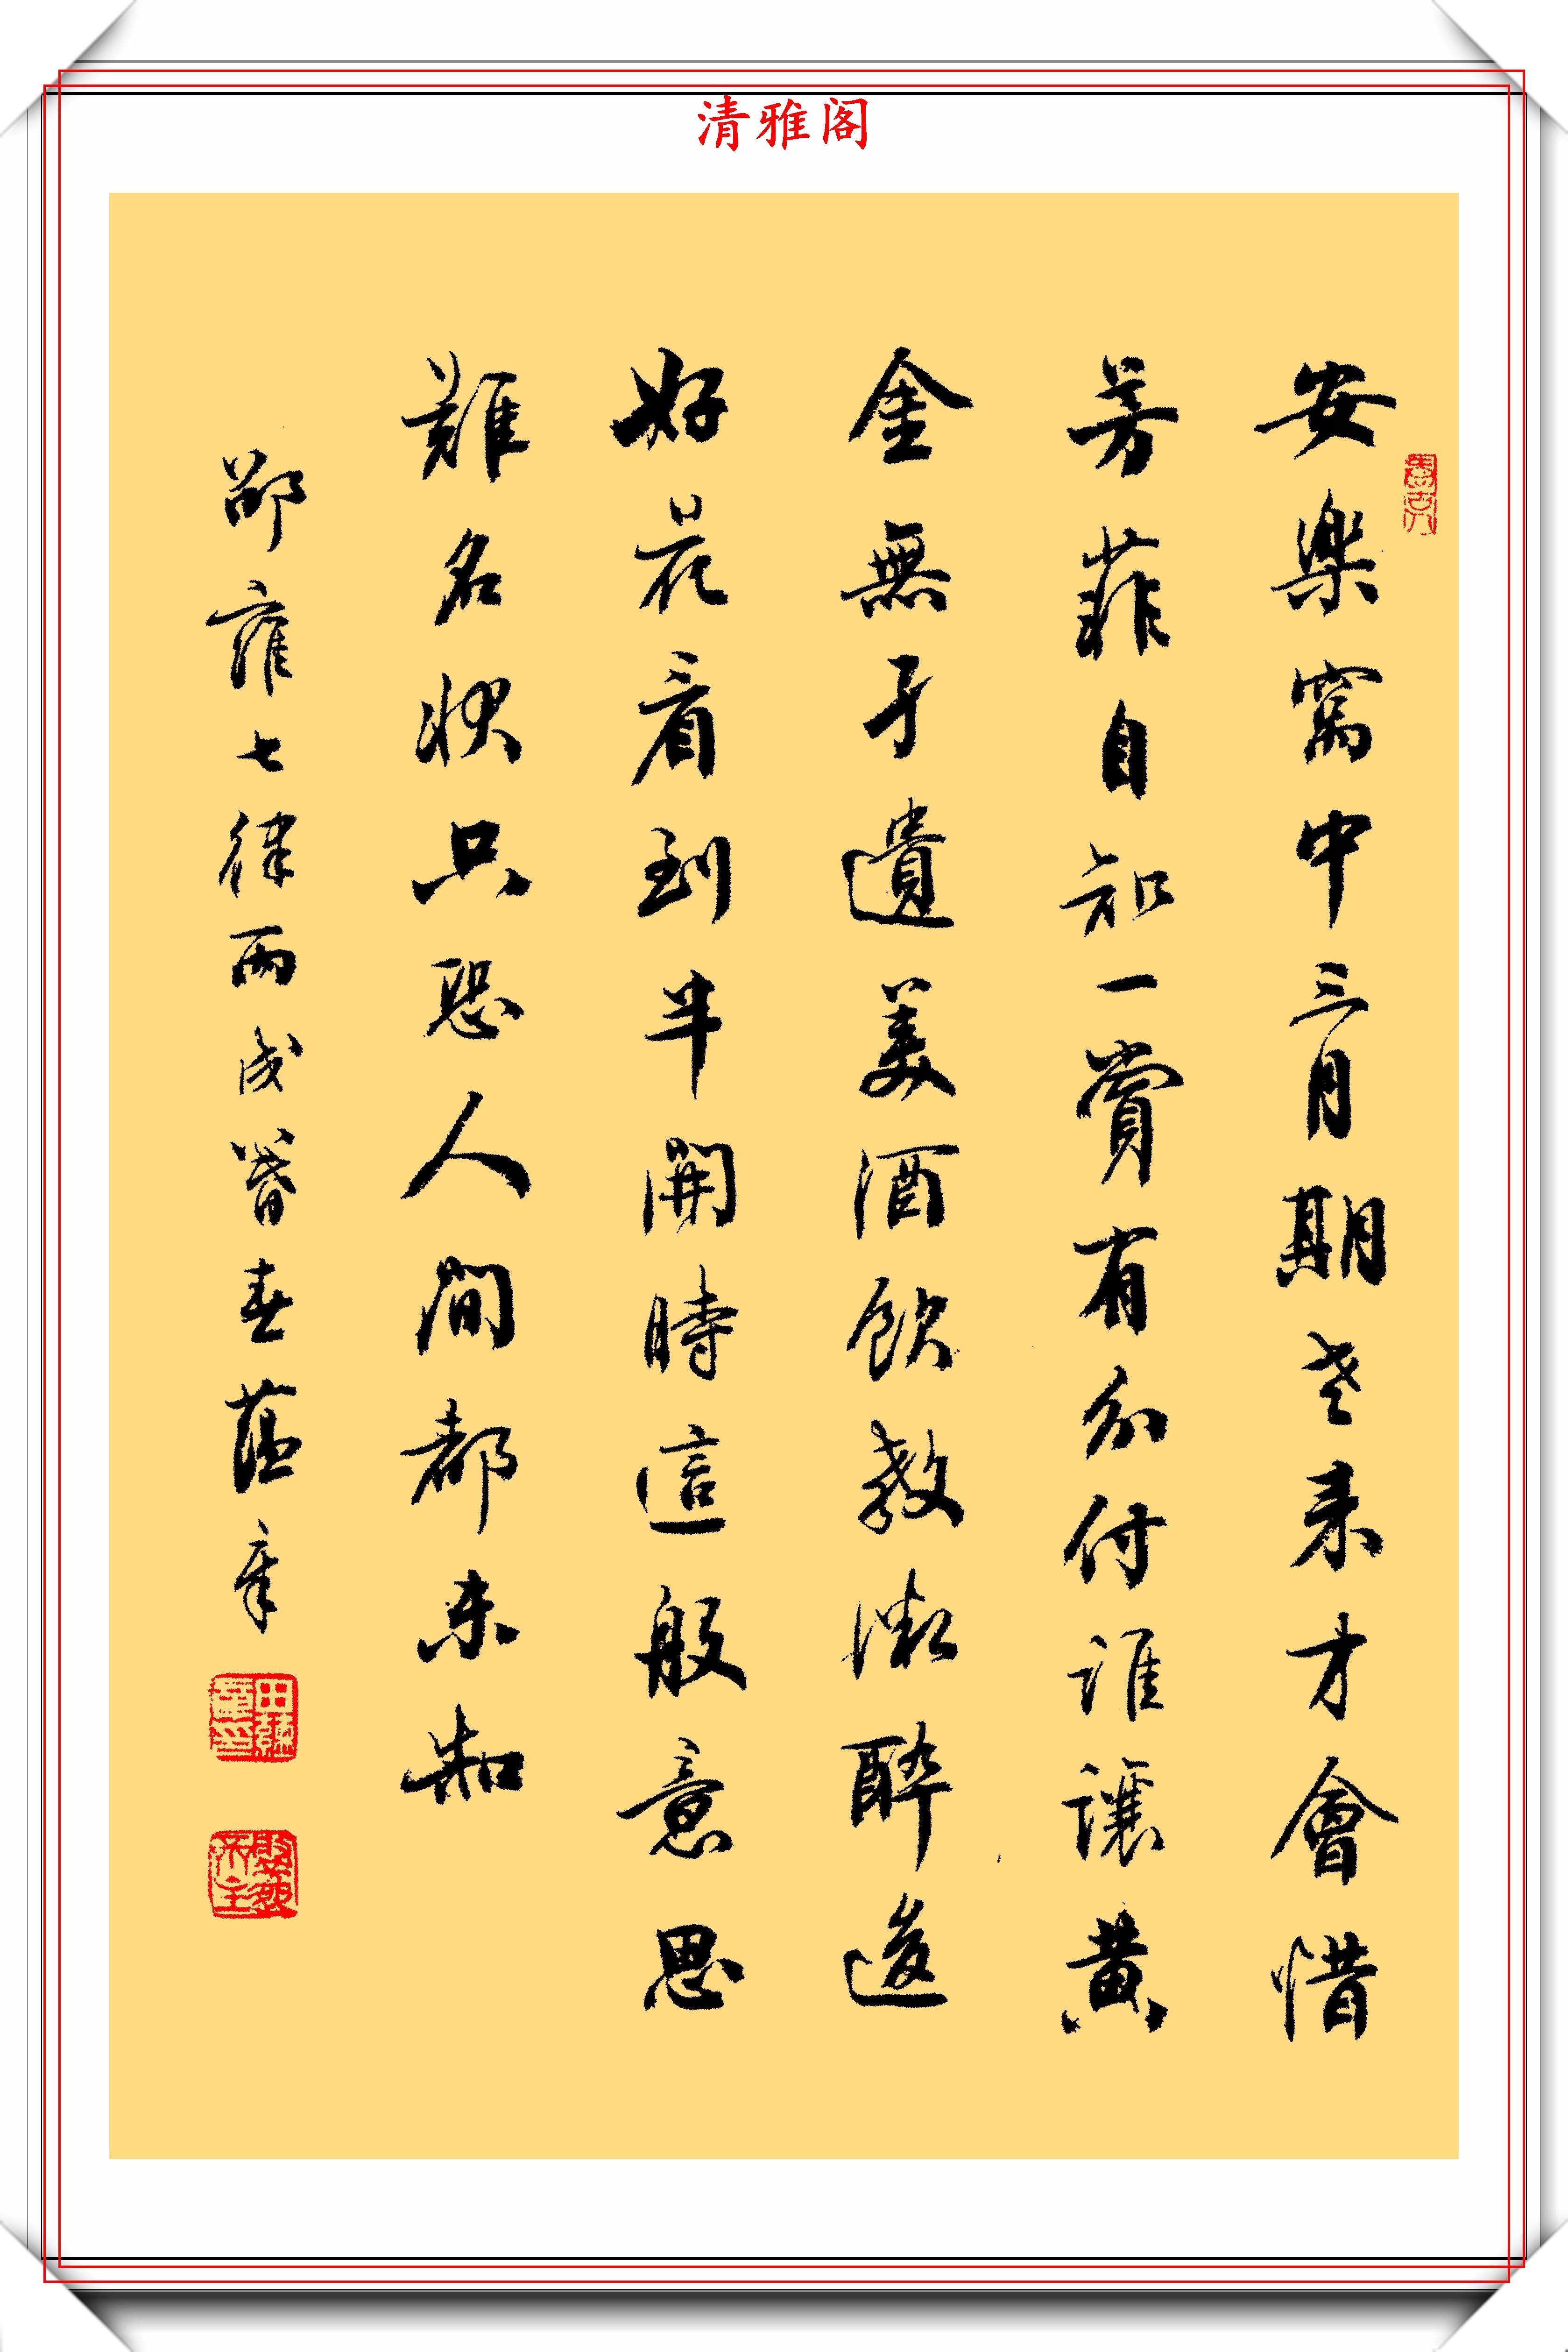 清雅阁
安樂窩中三月期老来才會惜
芳菲自知一賞有分付誰讓黄
金無孑遺美酒飲教微醉後
好花看到半開時這般意思
難名状只恐人間都未知
邵雍七律丙戌暮春蕴章